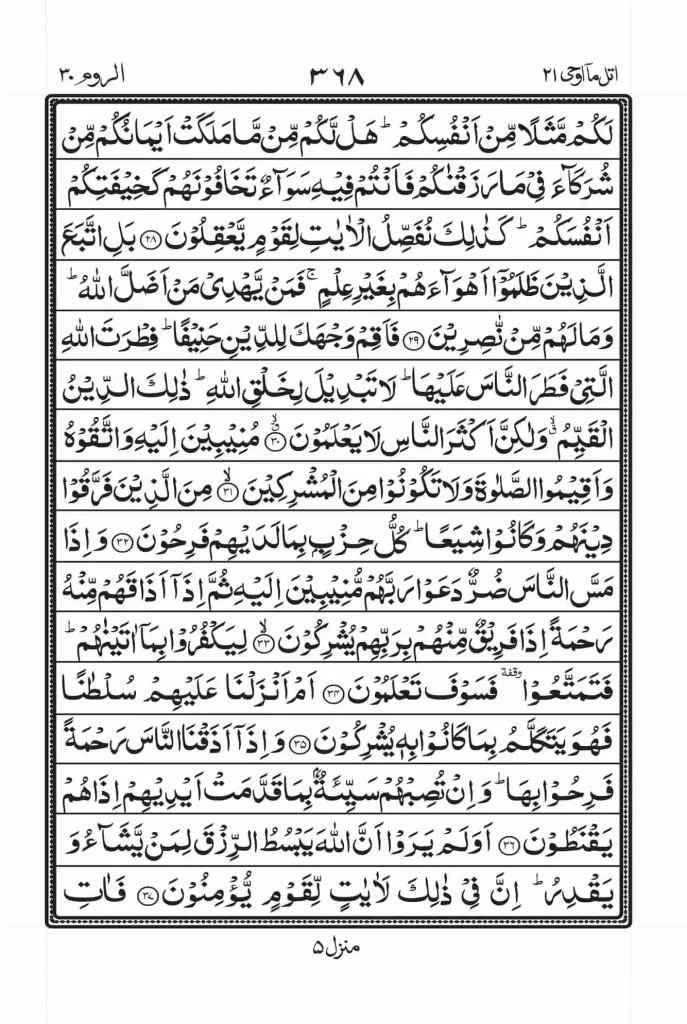 اتل مآ اوحی ۲۱ ۳۶۸ الروم ۳۰
لَكُمْ مَّثَلًا مِّنْ اَنْفُسِكُمْ ؕ هَلْ لَّكُمْ مِّنْ مَّا مَلَكَتْ اَیْمَانُكُمْ مِّنْ
شُرَكَآءَ فِیْ مَا رَزَقْنٰكُمْ فَاَنْتُمْ فِیْهِ سَوَآءٌ تَخَافُوْنَهُمْ كَخِیْفَتِكُمْ
اَنْفُسَكُمْ ؕ كَذٰلِكَ نُفَصِّلُ الْاٰیٰتِ لِقَوْمٍ یَّعْقِلُوْنَ ۲۸ بَلِ اتَّبَعَ
الَّذِیْنَ ظَلَمُوْۤا اَهْوَآءَهُمْ بِغَیْرِ عِلْمٍ ۚ فَمَنْ یَّهْدِیْ مَنْ اَضَلَّ اللّٰهُ ؕ
وَمَا لَهُمْ مِّنْ نّٰصِرِیْنَ ۲۹ فَاَقِمْ وَجْهَكَ لِلدِّیْنِ حَنِیْفًا ؕ فِطْرَتَ اللّٰهِ
الَّتِیْ فَطَرَ النَّاسَ عَلَیْهَا ؕ لَا تَبْدِیْلَ لِخَلْقِ اللّٰهِ ؕ ذٰلِكَ الدِّیْنُ
الْقَیِّمُ ۙۗ وَلٰكِنَّ اَكْثَرَ النَّاسِ لَا یَعْلَمُوْنَ ۳۰ۗۙ مُنِیْبِیْنَ اِلَیْهِ وَاتَّقُوْهُ
وَاَقِیْمُوا الصَّلٰوةَ وَلَا تَكُوْنُوْا مِنَ الْمُشْرِكِیْنَ ۳۱ۙ مِنَ الَّذِیْنَ فَرَّقُوْا
دِیْنَهُمْ وَكَانُوْا شِیَعًا ؕ كُلُّ حِزْبٍۭ بِمَا لَدَیْهِمْ فَرِحُوْنَ ۳۲ وَاِذَا
مَسَّ النَّاسَ ضُرٌّ دَعَوْا رَبَّهُمْ مُّنِیْبِیْنَ اِلَیْهِ ثُمَّ اِذَاۤ اَذَاقَهُمْ مِّنْهُ
رَحْمَةً اِذَا فَرِیْقٌ مِّنْهُمْ بِرَبِّهِمْ یُشْرِكُوْنَ ۳۳ۙ لِیَكْفُرُوْا بِمَاۤ اٰتَیْنٰهُمْ ؕ
فَتَمَتَّعُوْا وقفة فَسَوْفَ تَعْلَمُوْنَ ۳۴ اَمْ اَنْزَلْنَا عَلَیْهِمْ سُلْطٰنًا
فَهُوَ یَتَكَلَّمُ بِمَا كَانُوْا بِهٖ یُشْرِكُوْنَ ۳۵ وَاِذَاۤ اَذَقْنَا النَّاسَ رَحْمَةً
فَرِحُوْا بِهَا ؕ وَاِنْ تُصِبْهُمْ سَیِّئَةٌۢ بِمَا قَدَّمَتْ اَیْدِیْهِمْ اِذَا هُمْ
یَقْنَطُوْنَ ۳۶ اَوَلَمْ یَرَوْا اَنَّ اللّٰهَ یَبْسُطُ الرِّزْقَ لِمَنْ یَّشَآءُ وَ
یَقْدِرُ ؕ اِنَّ فِیْ ذٰلِكَ لَاٰیٰتٍ لِّقَوْمٍ یُّؤْمِنُوْنَ ۳۷ فَاٰتِ
منزل ۵